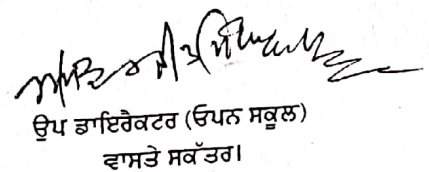 ਉਪ ਡਾਇਰੈਕਟਰ (ਓਪਨ ਸਕੂਲ)
ਵਾਸਤੇ ਸਕੱਤਰ।